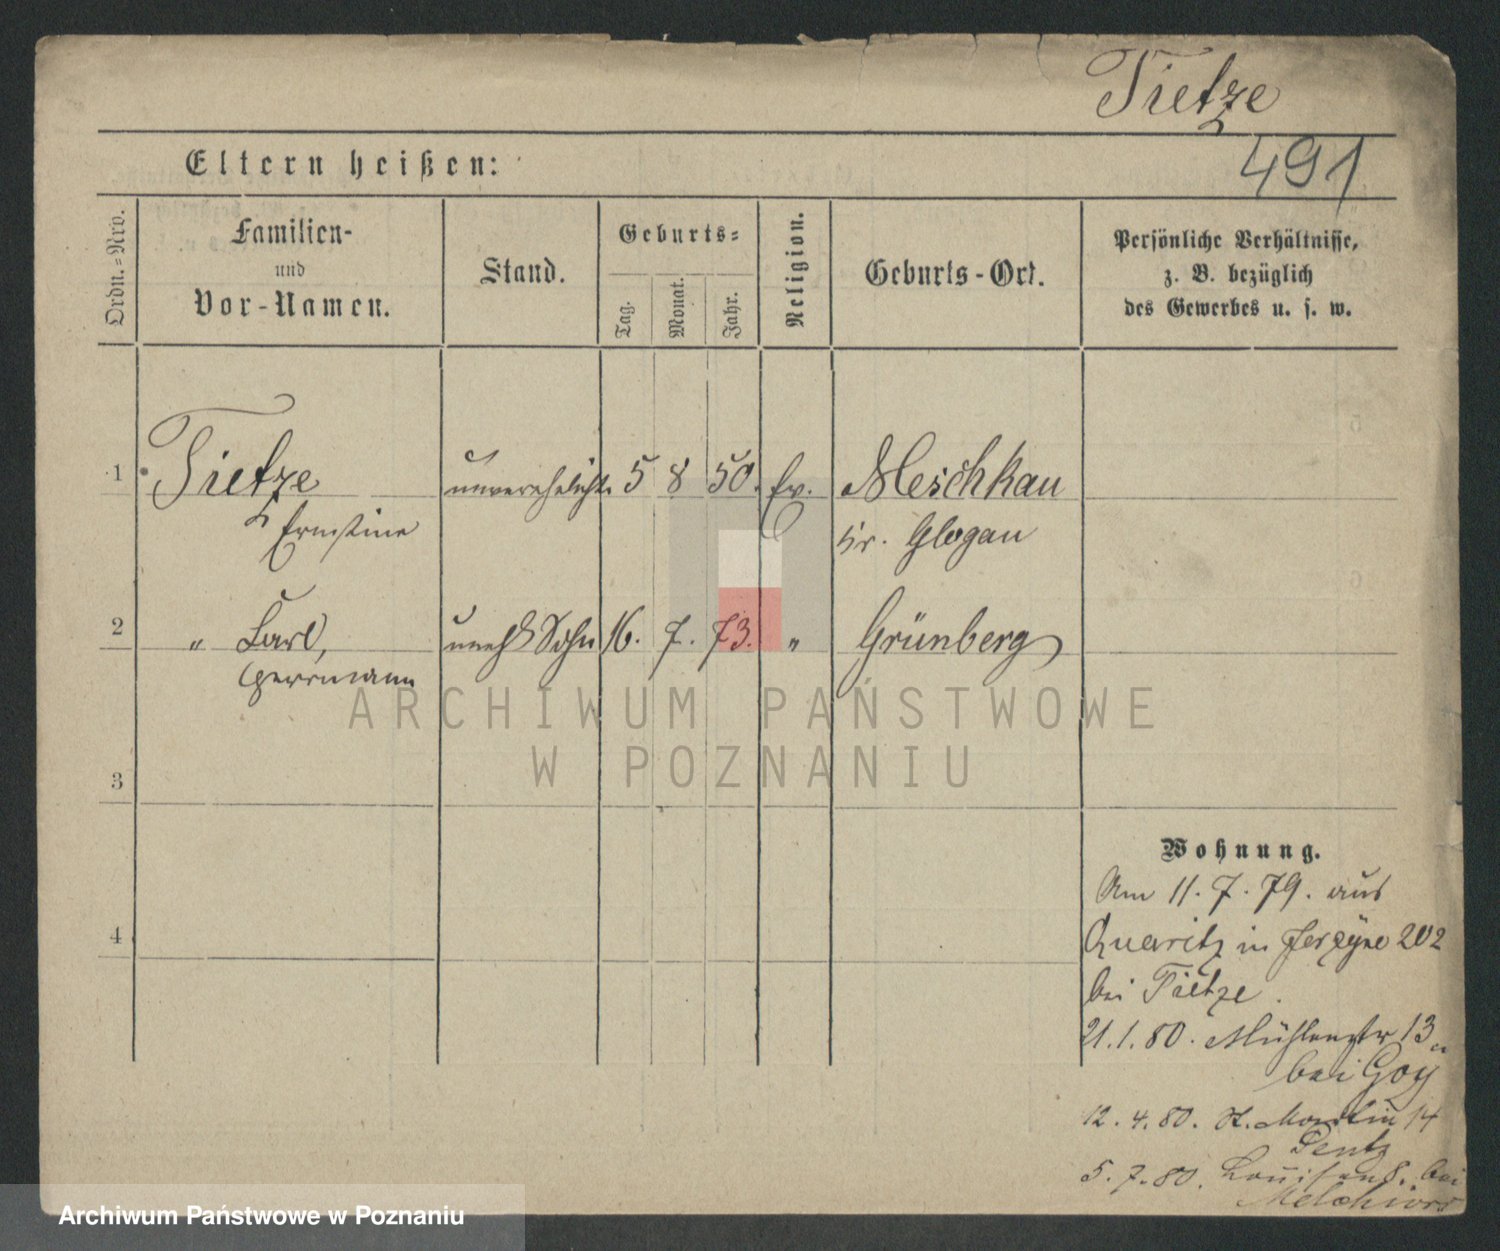 Tietze
491
Eltern heißen:
Ordn.=Nro.
Familien-
und
Vor-Namen.
Stand.
Geburts=
Tag.
Monat.
Jahr.
Religion.
Geburts-Ort.
Persönliche Verhältnisse,
z. B. bezüglich
des Gewerbes u. s. w.
1 Tietze unverehelicht 5 8 50. Ev. Meschkau
Ernstine Kr. Glogau
2 " Carl, unehl Sohn 16. 7. 73. " Grünberg
Herrmann
ARCHIWUM PAŃSTWOWE
W POZNANIU
3
4
Wohnung.
Am 11. 7. 79. aus
Quaritz in Jerzyce 202
bei Tietze.
21.1.80. Mühlenstr 13
bei Goy
12.4.80. St. Martin 14
Pentz
5.7.80. Louisen 8. bei
Melchior
Archiwum Państwowe w Poznaniu